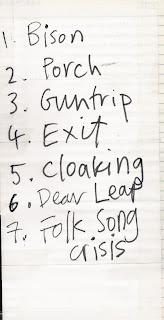 1. Bison
2. Porch
3. Guntrip
4. Exit
5. Cloaking
6. Dear Leap
7. Folk Song
crisis